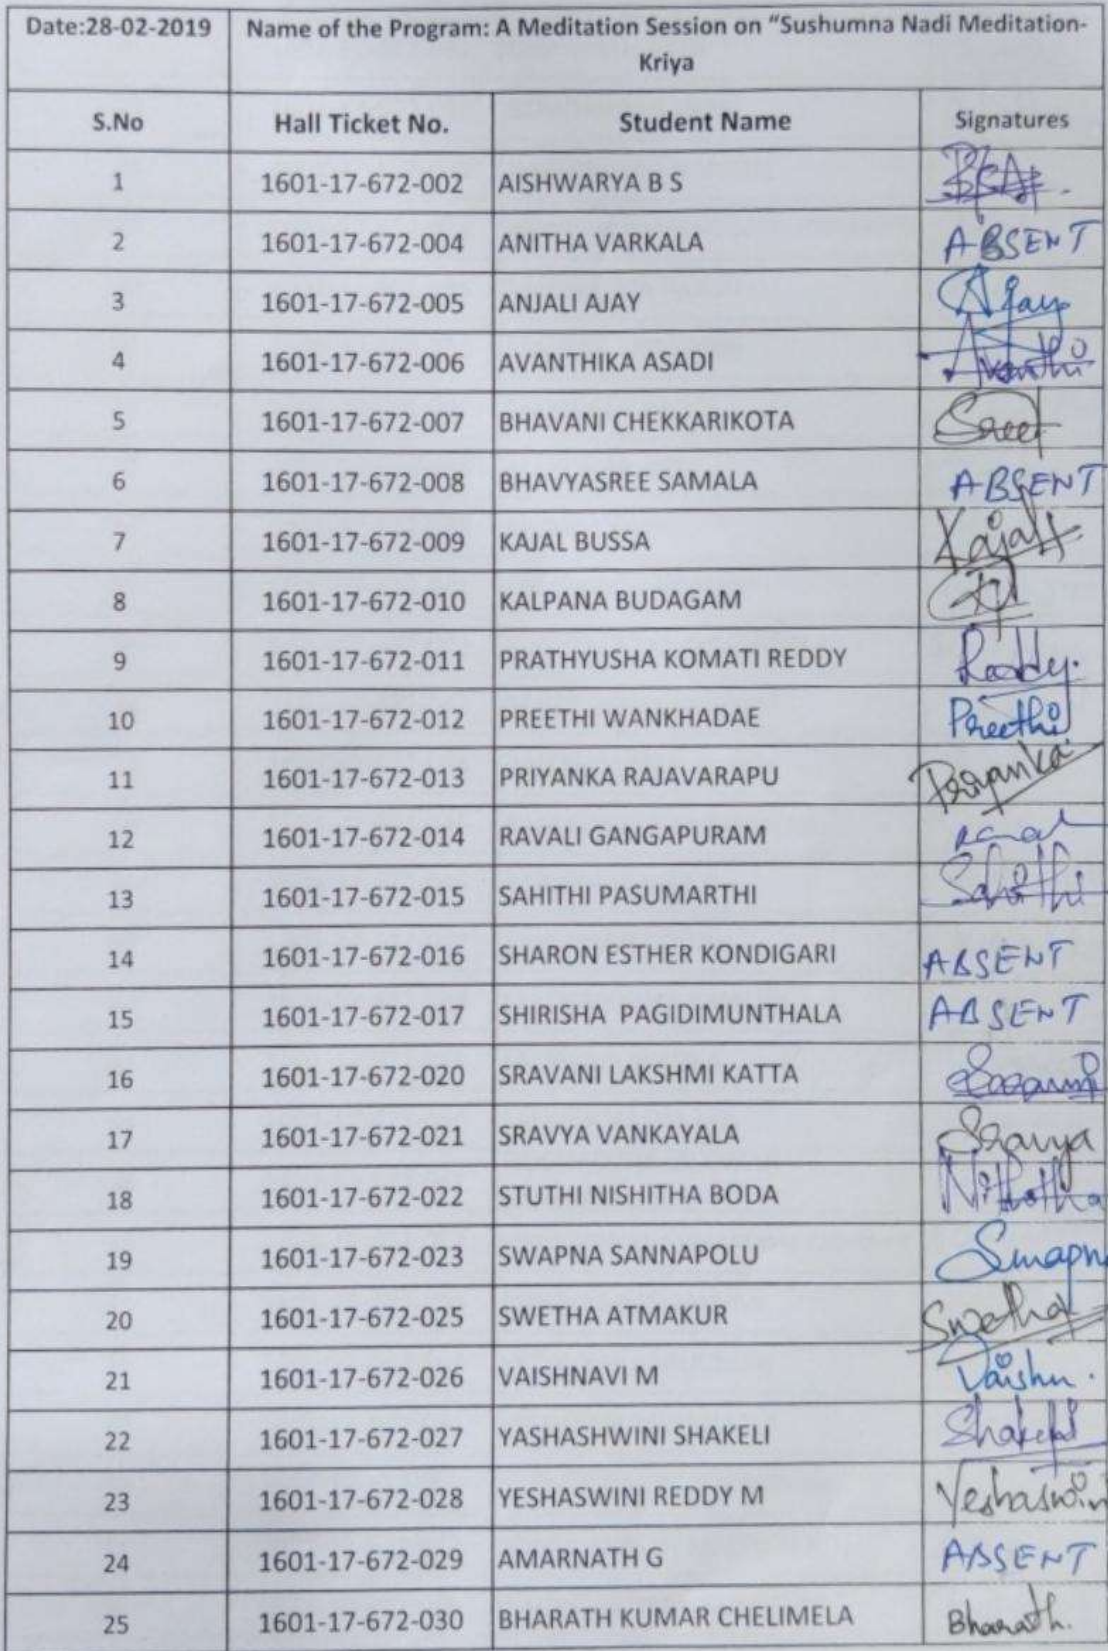 Date:28-02-2019 Name of the Program: A Meditation Session on "Sushumna Nadi Meditation-
Kriya
S.No Hall Ticket No. Student Name Signatures
1 1601-17-672-002 AISHWARYA B S
2 1601-17-672-004 ANITHA VARKALA ABSENT
3 1601-17-672-005 ANJALI AJAY Ajay
4 1601-17-672-006 AVANTHIKA ASADI
5 1601-17-672-007 BHAVANI CHEKKARIKOTA
6 1601-17-672-008 BHAVYASREE SAMALA ABSENT
7 1601-17-672-009 KAJAL BUSSA Kajal
8 1601-17-672-010 KALPANA BUDAGAM
9 1601-17-672-011 PRATHYUSHA KOMATI REDDY Reddy.
10 1601-17-672-012 PREETHI WANKHADAE Preethi
11 1601-17-672-013 PRIYANKA RAJAVARAPU Priyanka
12 1601-17-672-014 RAVALI GANGAPURAM
13 1601-17-672-015 SAHITHI PASUMARTHI Sahithi
14 1601-17-672-016 SHARON ESTHER KONDIGARI ABSENT
15 1601-17-672-017 SHIRISHA PAGIDIMUNTHALA ABSENT
16 1601-17-672-020 SRAVANI LAKSHMI KATTA
17 1601-17-672-021 SRAVYA VANKAYALA Sravya
18 1601-17-672-022 STUTHI NISHITHA BODA
19 1601-17-672-023 SWAPNA SANNAPOLU Swapn
20 1601-17-672-025 SWETHA ATMAKUR Swetha
21 1601-17-672-026 VAISHNAVI M Vaishu.
22 1601-17-672-027 YASHASHWINI SHAKELI Shakeli
23 1601-17-672-028 YESHASWINI REDDY M Yeshaswin
24 1601-17-672-029 AMARNATH G ABSENT
25 1601-17-672-030 BHARATH KUMAR CHELIMELA Bharath.